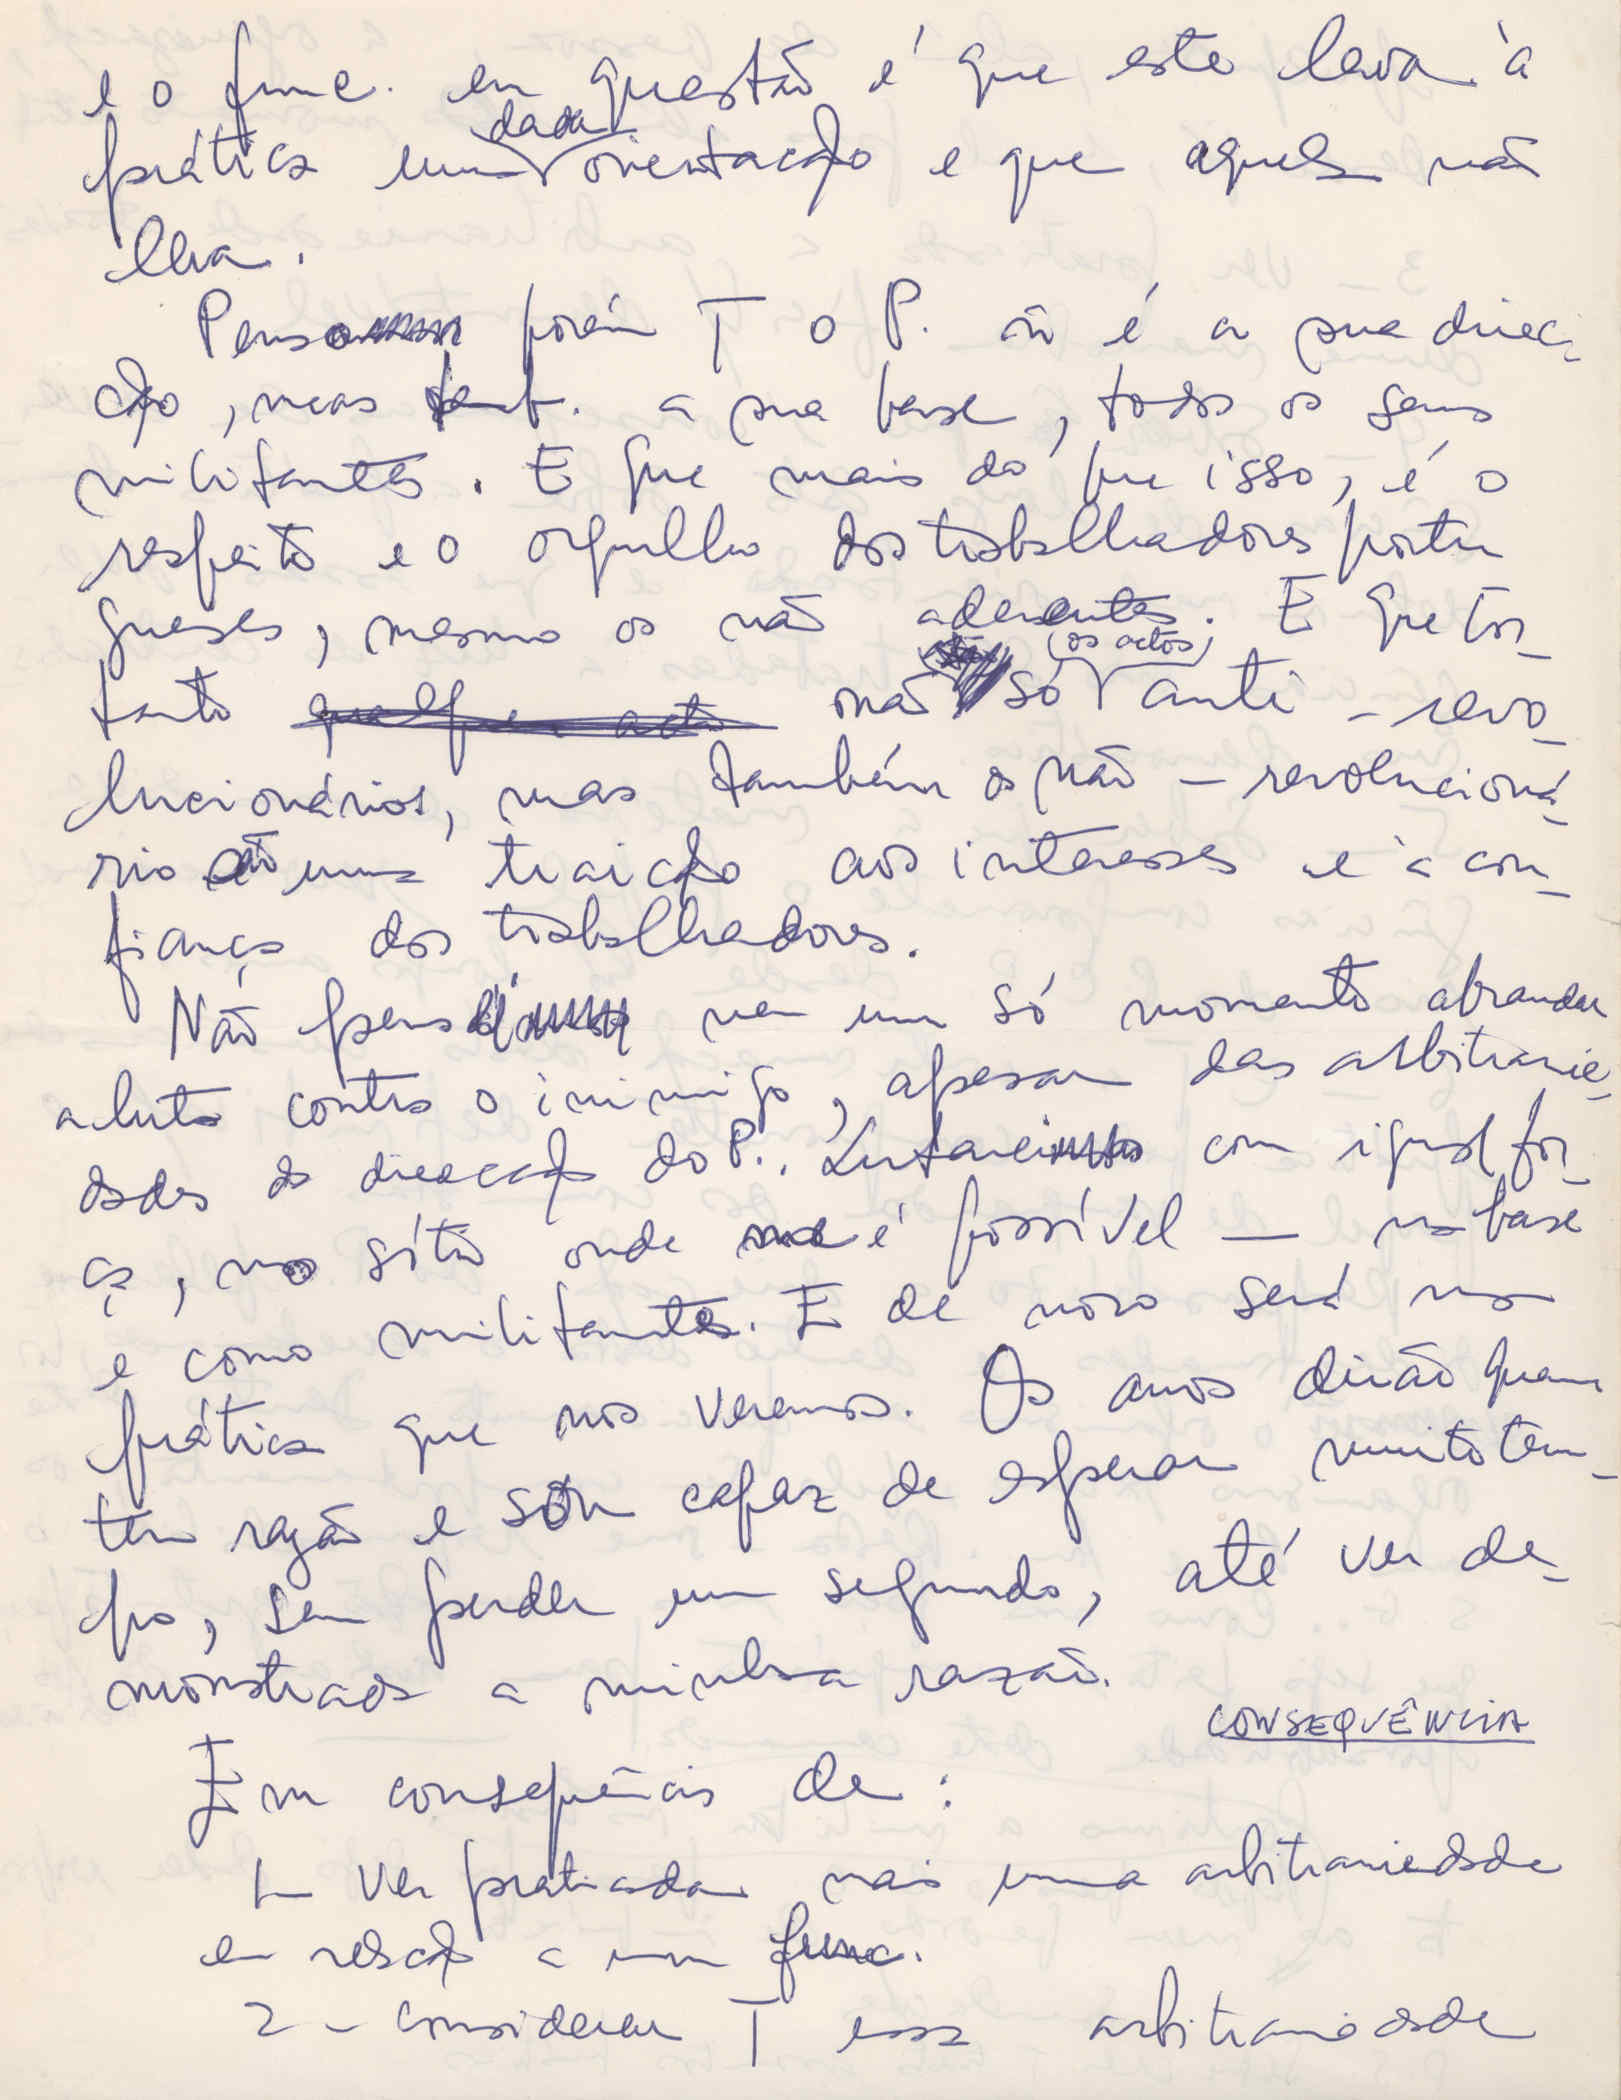 e o func. em questão é que este leva à
prática uma dada orientação e que aquela não
leva.
Penso porém T o P. não é a sua direc-
ção, mas tamb. a sua base, todos os seus
militantes. E que mais do que isso, é o
respeito e o orgulho dos trabalhadores portu
gueses, mesmo os não aderentes. E que por-
tanto qualquer acto não só (os actos) anti-revo-
lucionários, mas também os não-revolucioná-
rio são uma traição aos interesses e à con-
fiança dos trabalhadores.
Não penso nem um só momento abrandar
a luta contra o inimigo, apesar das arbitrarie-
dades da direcção do P.. Lutarei com igual for-
ça, no sítio onde é possível — na base
e como militante. E de novo será na
prática que nos veremos. Os anos dirão quem
tem razão e sou capaz de esperar muito tem-
po, sem perder um segundo, até ver de-
monstrada a minha razão.
CONSEQUÊNCIA
Em consequência de:
1- Ver praticada mais uma arbitrariedade
em relação a um func.
2 - considerar T essa arbitrariedade